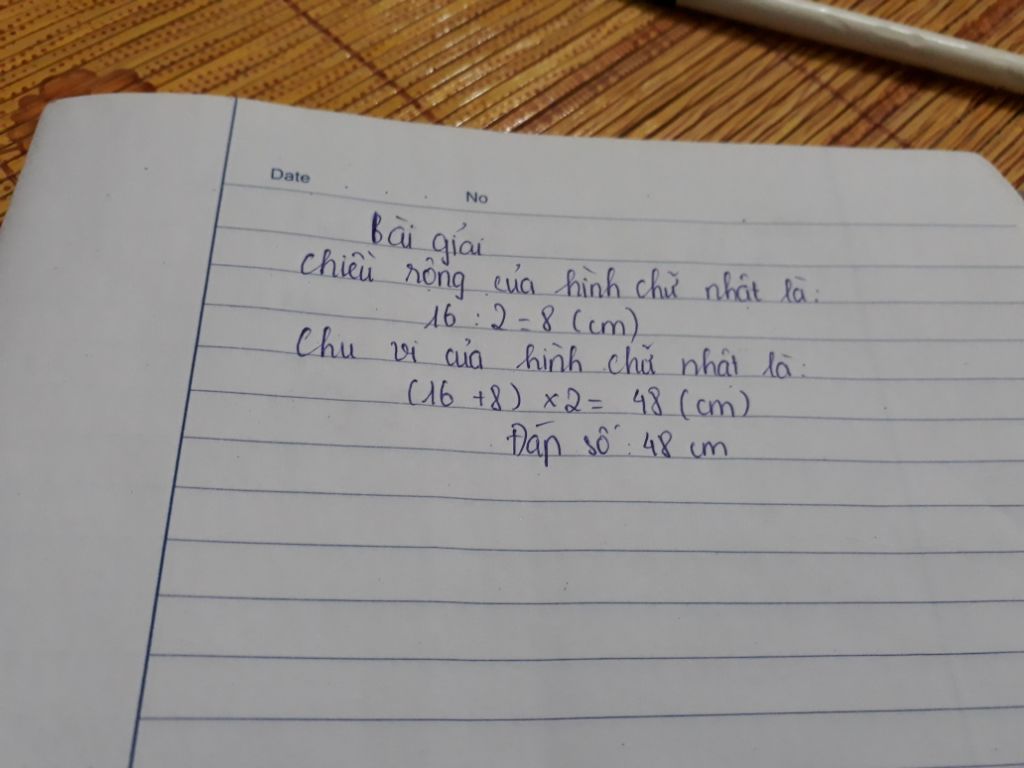 Date
No
Bài giải
Chiều rộng của hình chữ nhật là:
16 : 2 = 8 (cm)
Chu vi của hình chữ nhật là:
(16 + 8) × 2 = 48 (cm)
Đáp số : 48 cm